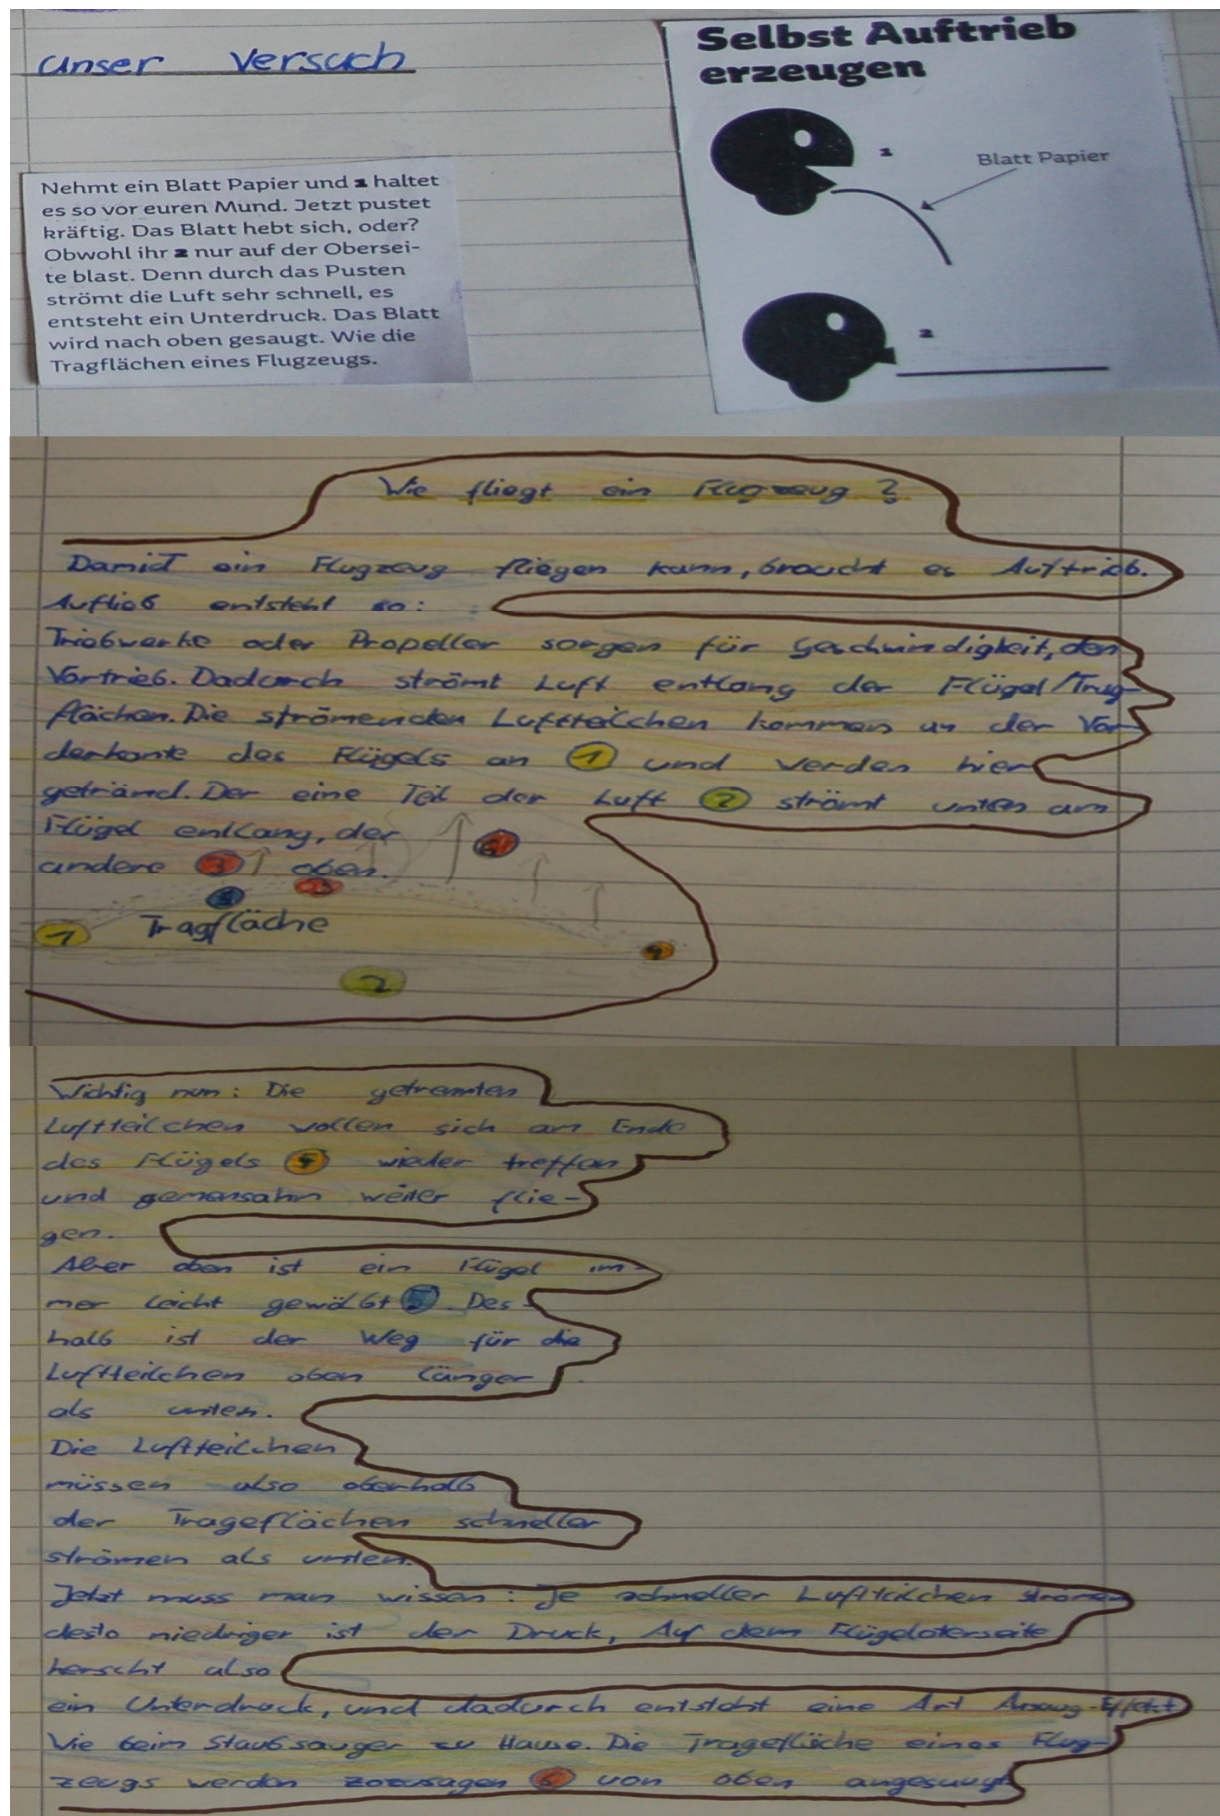 unser Versuch
Selbst Auftrieb
erzeugen
1
Blatt Papier
2
Nehmt ein Blatt Papier und 1 haltet
es so vor euren Mund. Jetzt pustet
kräftig. Das Blatt hebt sich, oder?
Obwohl ihr 2 nur auf der Obersei-
te blast. Denn durch das Pusten
strömt die Luft sehr schnell, es
entsteht ein Unterdruck. Das Blatt
wird nach oben gesaugt. Wie die
Tragflächen eines Flugzeugs.
Wie fliegt ein Flugzeug?
Damit ein Flugzeug fliegen kann, braucht es Auftrieb.
Auflieb entsteht so:
Triebwerke oder Propeller sorgen für Geschwindigkeit, den
Vortrieb. Dadurch strömt Luft entlang der Flügel/Trag-
flächen. Die strömenden Luftteilchen kommen an der Vor-
derkante des Flügels an 1 und werden hier
getränd. Der eine Teil der Luft 2 strömt unten am
Flügel entlang, der
andere 3 oben.
6
5 3
Tragfläche
1
4
2
Wichtig nun: Die getrennten
Luftteilchen wollen sich am Ende
des Flügels 4 wieder treffen
und gemensahm weiter flie-
gen.
Aber oben ist ein Flügel im-
mer leicht gewölbt 5. Des-
halb ist der Weg für die
Luftteilchen oben länger
als unten.
Die Luftteilchen
müssen also oberhalb
der Trageflächen schneller
strömen als unten.
Jetzt muss man wissen: Je schneller Luftteilchen strömen
desto niedriger ist der Druck, Auf dem Flügeloberseite
herscht also
ein Unterdruck, und dadurch entsteht eine Art Ansaug-Effekt
Wie beim Staubsauger zu Hause. Die Tragefläche eines Flug-
zeugs werden zozusagen 6 von oben angesaugt